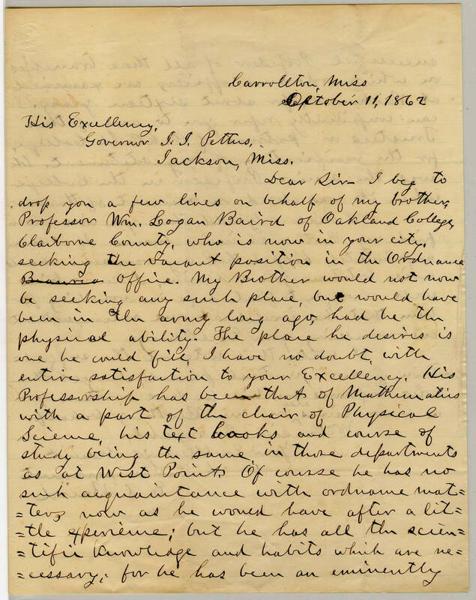 Carrollton, Miss
October 11, 1862
His Excellency,
Governor J. J. Pettus,
Jackson, Miss.
Dear Sir I beg to
drop you a few lines on behalf of my brother,
Professor Wm. Logan Baird of Oakland College,
Claiborne County, who is now in your city,
seeking the vacant position in the Ordnance
Office. My Brother would not now
be seeking any such place, but would have
been in the army long ago, had he the
physical ability. The place he desires is
one he could fill, I have no doubt, with
entire satisfaction to your Excellency. His
Professorship has been that of Mathematics
with a part of the chair of Physical
Science, his text books and course of
study being the same in those departments
as at West Point. Of course he has no
such acquaintance with ordnance mat=
=ters now as he would have after a lit=
=tle experience; but he has all the scien=
=tific knowledge and habits which are ne=
=cessary; for he has been an eminently